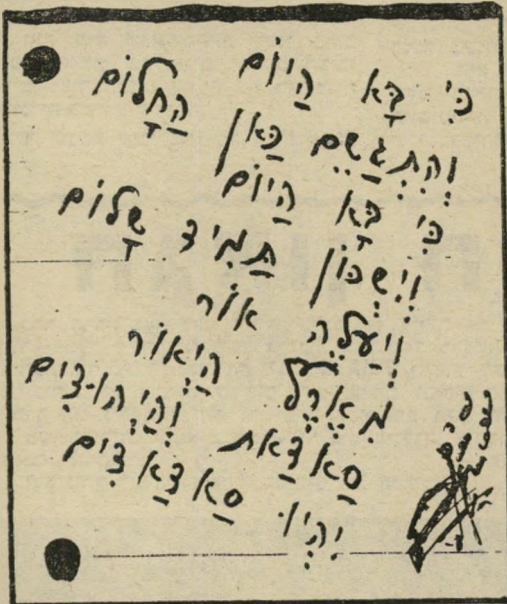 כִּי בָּא הַיּוֹם הַחָלוֹם
וְהִתְגַשֵׁם כַּאן
כִּי בָּא הַיּוֹם
וְיִשְׁכּוֹן תַּמִיד שָׁלוֹם
וְיַעֲלֶה אוֹר
מֵאֶרֶץ הַיְאוֹר
סַאדַאת וְהַיְהוּדִים
יִהְיוּ סַאדַאדִים